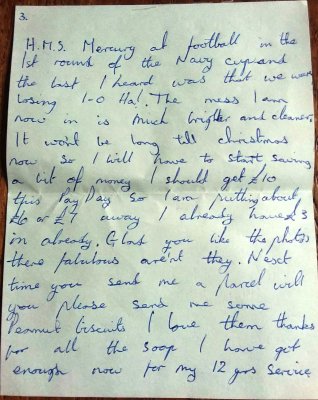 3.
H.M.S. Mercury at football in the
1st round of the Navy cup and
the last I heard was that we were
losing 1-0 Ha!. The mess I am
now in is much brighter and cleaner.
It wont be long till christmas
now so I will have to start saving
a bit of money I should get £10
this Pay Day so I am putting about
£6 or £7 away I already have £3
in already. Glad you like the photos
there fabulous are'nt they. Next
time you send me a parcel will
you please send me some
Peanut biscuits I love them thanks
for all the soap I have got
enough now for my 12 yrs service